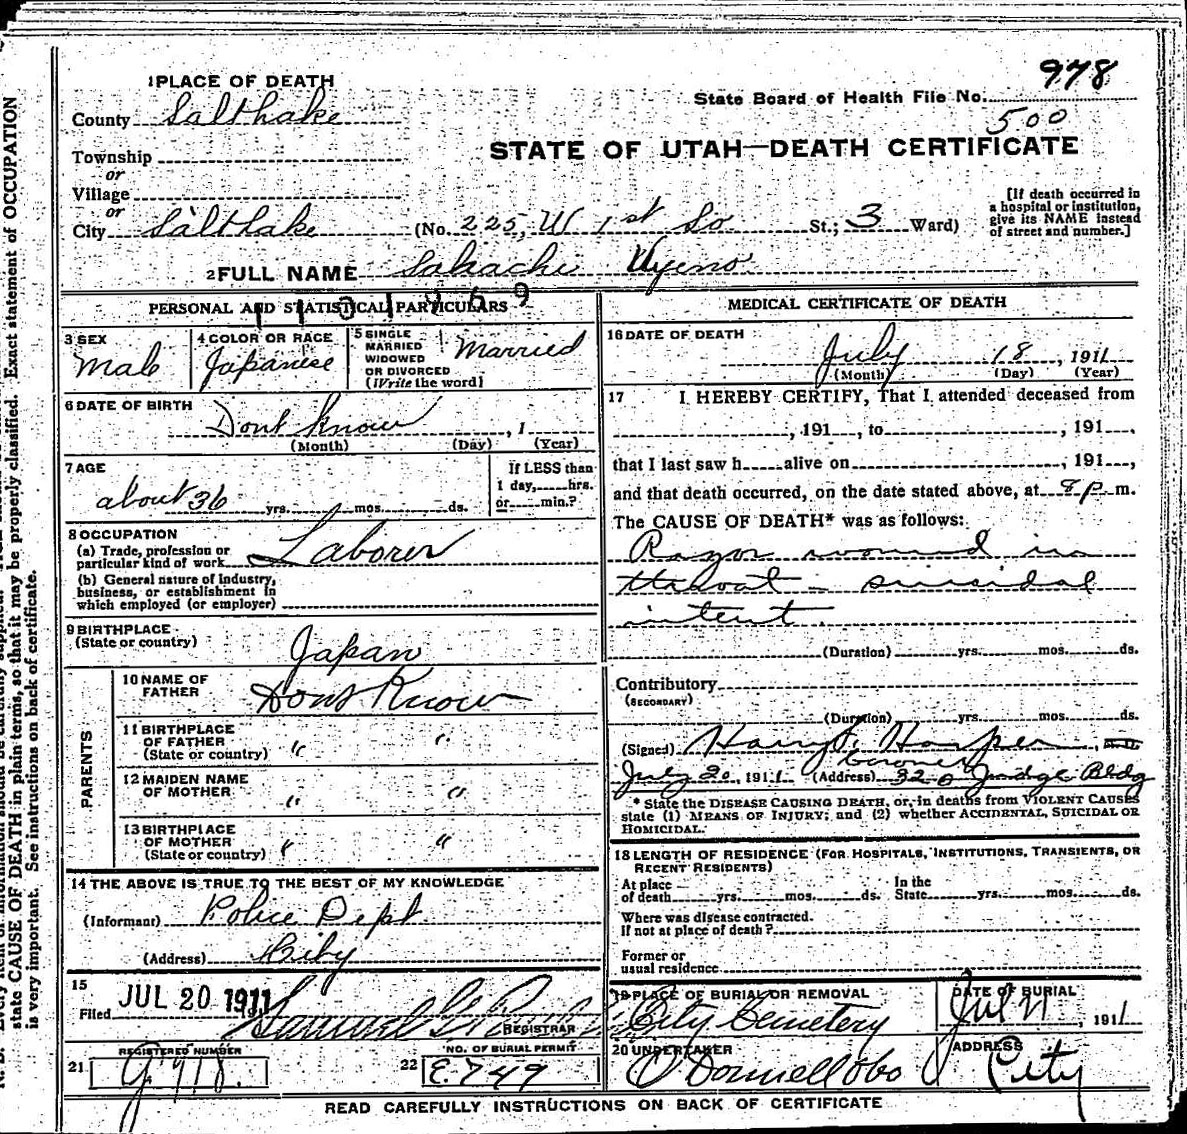 1 PLACE OF DEATH
978
State Board of Health File No.
500
County Salt Lake
STATE OF UTAH—DEATH CERTIFICATE
Township
or
Village
or
City Salt Lake (No. 225, W 1st So St.; 3 Ward)
[If death occurred in
a hospital or institution,
give its NAME instead
of street and number.]
2 FULL NAME Sakachi Uyeno
PERSONAL AND STATISTICAL PARTICULARS
3 SEX
Male
4 COLOR OR RACE
Japanese
5 SINGLE
MARRIED
WIDOWED
OR DIVORCED
(Write the word)
Married
6 DATE OF BIRTH
Dont know , 1
(Month) (Day) (Year)
7 AGE
about 36 yrs. mos. ds.
If LESS than
1 day, hrs.
or min.?
8 OCCUPATION
(a) Trade, profession or
particular kind of work Laborer
(b) General nature of industry,
business, or establishment in
which employed (or employer)
9 BIRTHPLACE
(State or country)
Japan
PARENTS
10 NAME OF
FATHER
Dont Know
11 BIRTHPLACE
OF FATHER
(State or country) " "
12 MAIDEN NAME
OF MOTHER
" "
13 BIRTHPLACE
OF MOTHER
(State or country) " "
14 THE ABOVE IS TRUE TO THE BEST OF MY KNOWLEDGE
(Informant) Police Dept
(Address) City
15
Filed JUL 20 1911 Samuel G.
REGISTRAR
REGISTERED NUMBER
21 G 918.
NO. OF BURIAL PERMIT
22 E. 749
MEDICAL CERTIFICATE OF DEATH
16 DATE OF DEATH
July 18, 1911
(Month) (Day) (Year)
17 I HEREBY CERTIFY, That I attended deceased from
, 191 , to , 191 ,
that I last saw h alive on , 191 ,
and that death occurred, on the date stated above, at 8 p m.
The CAUSE OF DEATH* was as follows:
Razor wound in
throat - suicidal
intent.
(Duration) yrs. mos. ds.
Contributory
(SECONDARY)
(Duration) yrs. mos. ds.
(Signed) Harry S. Harper, M.D.
Coroner
July 20, 1911 (Address) 320 Judge Bldg
* State the DISEASE CAUSING DEATH, or, in deaths from VIOLENT CAUSES
state (1) MEANS OF INJURY; and (2) whether ACCIDENTAL, SUICIDAL OR
HOMICIDAL.
18 LENGTH OF RESIDENCE (FOR HOSPITALS, INSTITUTIONS, TRANSIENTS, OR
RECENT RESIDENTS)
At place
of death yrs. mos. ds.
In the
State yrs. mos. ds.
Where was disease contracted.
If not at place of death?
Former or
usual residence
19 PLACE OF BURIAL OR REMOVAL
City Cemetery
DATE OF BURIAL
Jul 21, 1911
20 UNDERTAKER
O'Donnell &
ADDRESS
City
READ CAREFULLY INSTRUCTIONS ON BACK OF CERTIFICATE
state CAUSE OF DEATH in plain terms, so that it may be properly classified. Exact statement of OCCUPATION
is very important. See instructions on back of certificate.